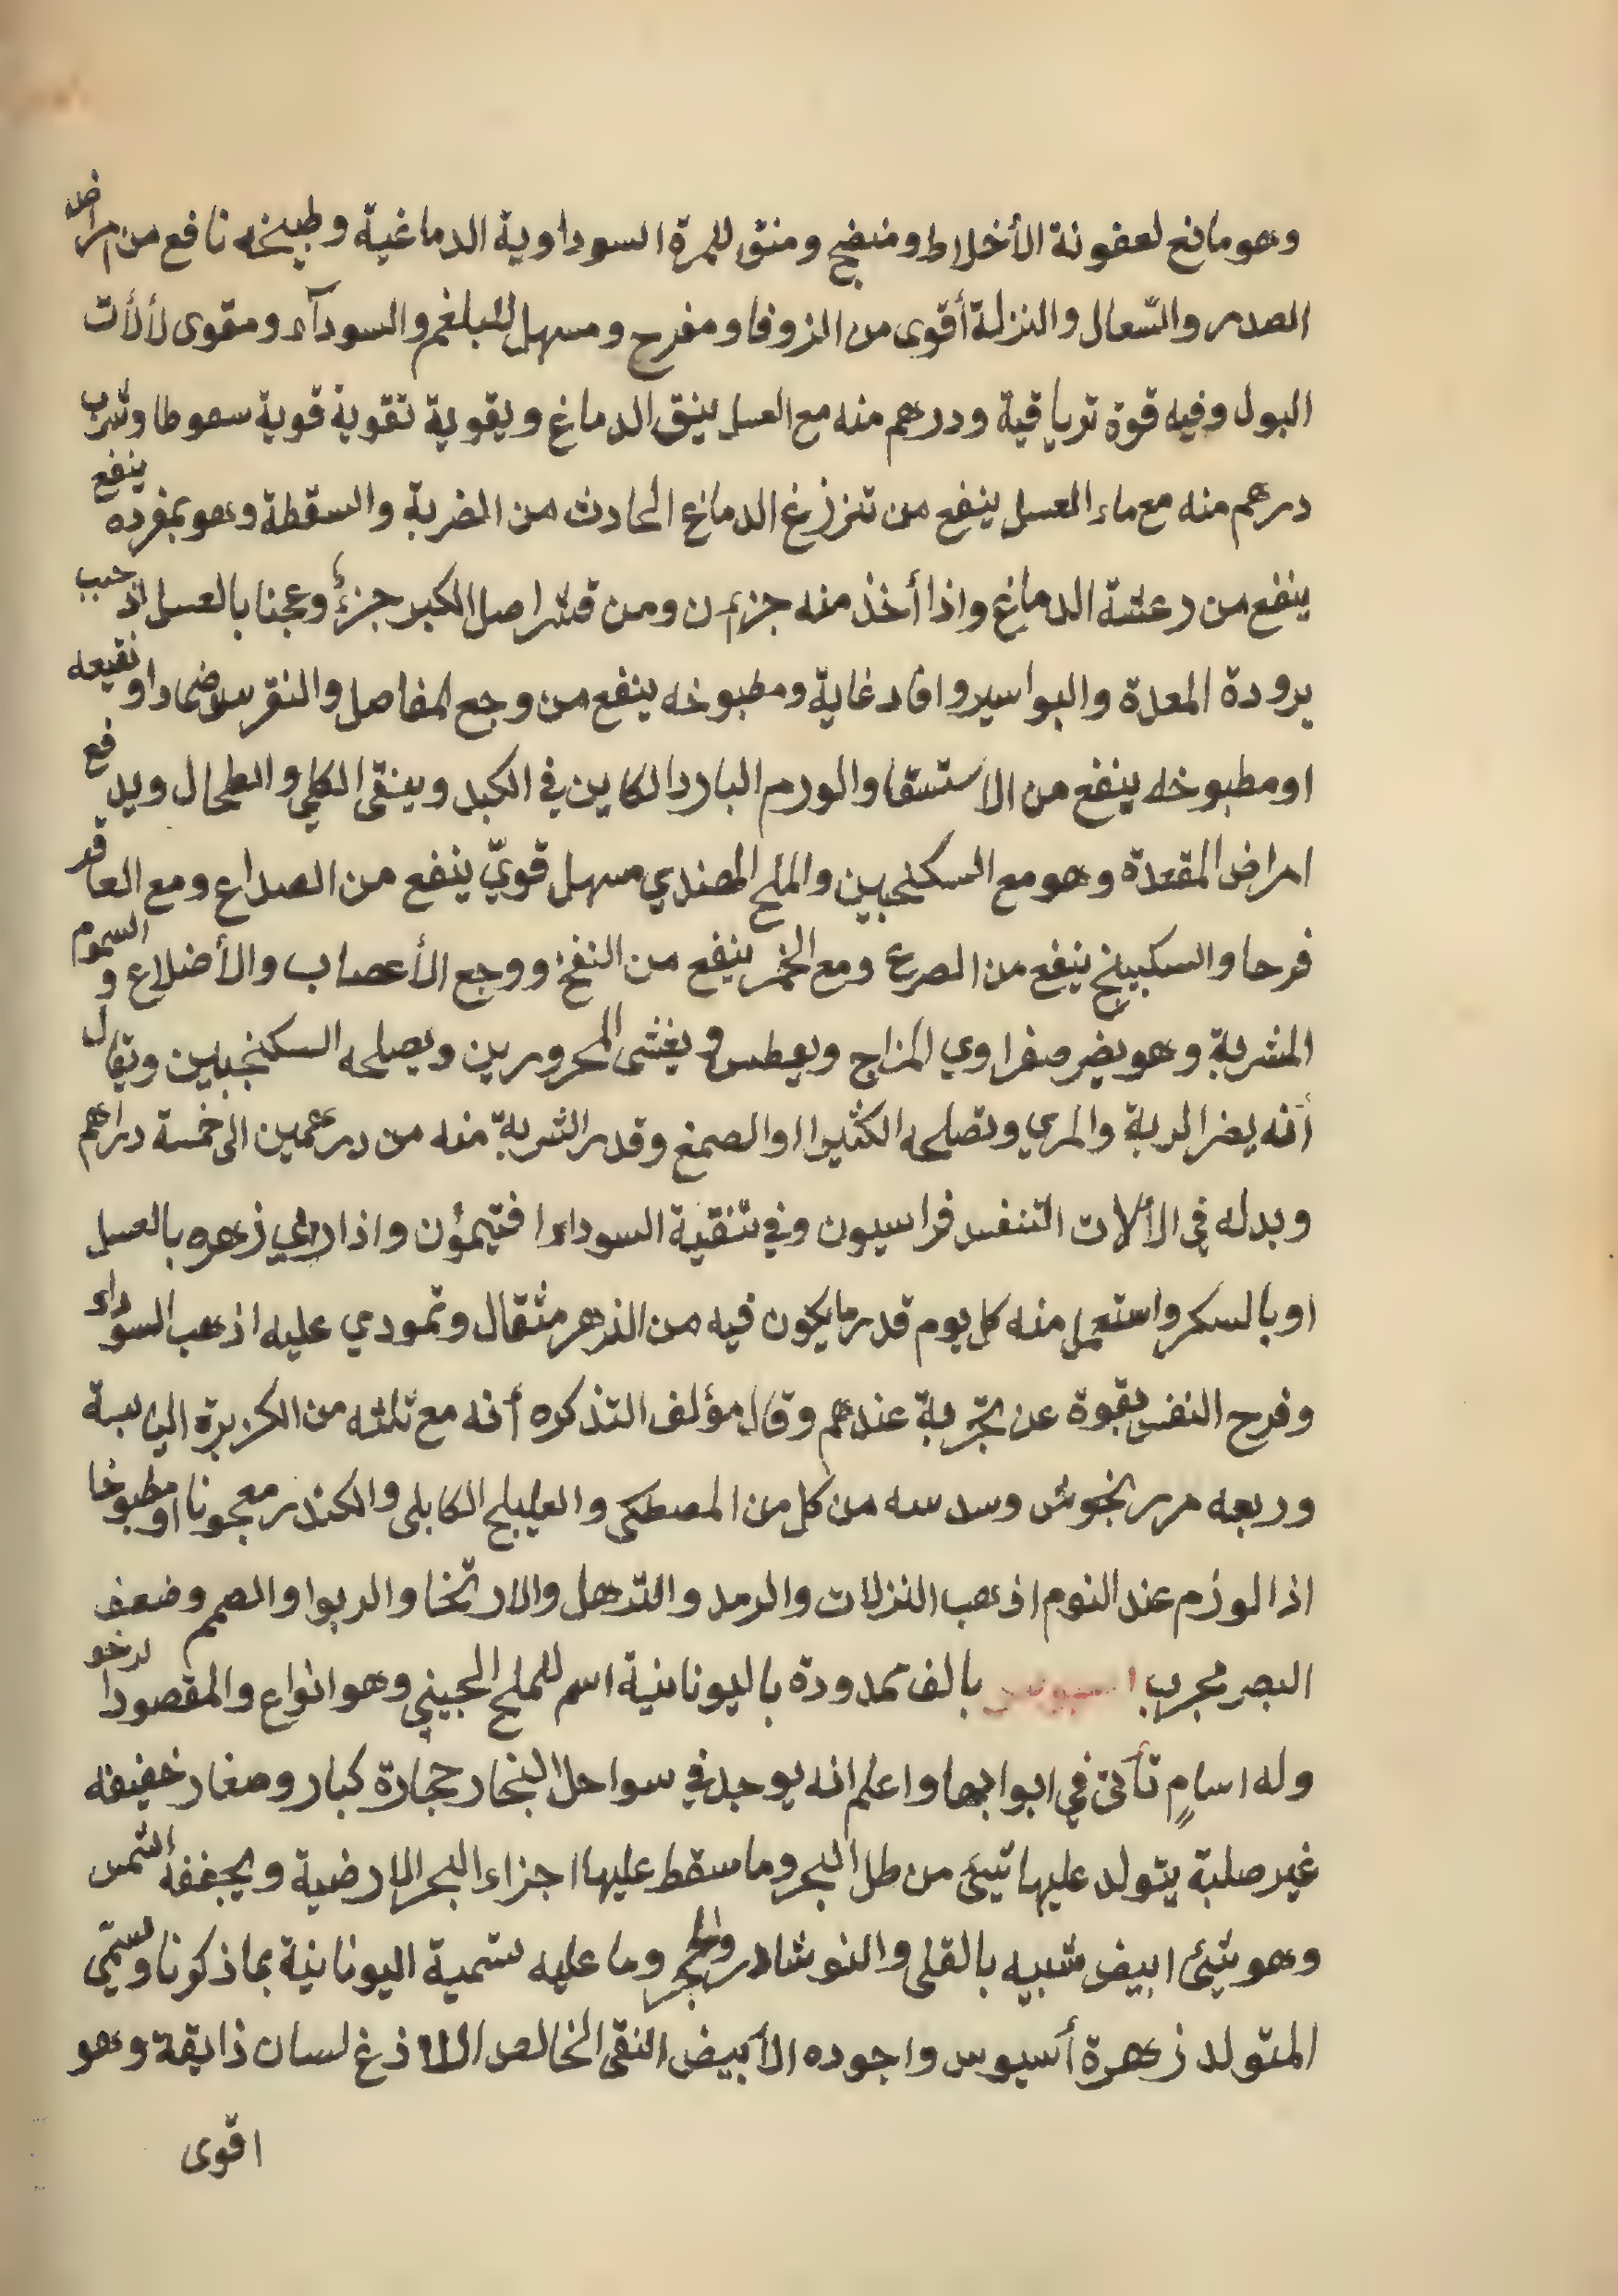 وهو مانع لعفونة الأخلاط ومنضج ومنق للمرة السوداوية الدماغية وطبيخه نافع من امراض
الصدر والسّعال والنزلة أقوى من الزوفا ومفرح ومسهل للبلغم والسودآء ومقوى لألأت
البول وفيه قوة ترياقية ودرهم منه مع العسل ينقى الدماغ ويقوية تقوية قوية سعوطا وشرب
درهم منه مع ماء العسل ينفع من تزرزغ الدماغ الحادث من الضربة والسقطة وهو بمفرده ينفع
ينفع من رعشة الدماغ واذا أخذ منه جزءين ومن قشر اصل الكبر جزءٌ وعجنا بالعسل اذهب
برودة المعدة والبواسير وافاد غاية ومطبوخه ينفع من وجع المفاصل والنقرس ضمادا ونقيعه
او مطبوخه ينفع من الاستسقا والورم البارد الكاين في الكبد وينقى الكلي والطحال ويدفع
امراض المقعدة وهو مع السكنجبين والملح الهندي مسهل قويّ ينفع من الصداع ومع العاقر
قرحا والسكبينج ينفع من الصرع ومع الخمر ينفع من النفخ ووجع الأعصاب والأضلاع والسموم
المشربة وهو يضر صفراوي المزاج ويعطس ويغشى المحرورين ويصلحه السكنجبين ويقال
أنه يضر الرية والمري وتصلحه الكثيرا او الصمغ وقدر الشربة منه من درهمين الى خمسة دراهم
وبدله في الألات التنفس فراسيون وفي تنقية السوداء افتيمؤن واذا ربي زهره بالعسل
او بالسكر واستعمل منه كل يوم قدر ما يكون فيه من الزهر مثقال وتمودي عليه اذهب السوداء
وفرح النفس بقوة عن تجربة عندهم وقال مؤلف التذكره أنه مع ثلثه من الكزبرة اليابسة
وربعه مرزنجوش وسدسه من كل من المصطكى والهليلج الكابلى والكندر معجونا او مطبوخا
اذا لوزم عند النوم اذهب النزلات والرمد والترهل والارتخا والربوا والصمم وضعف
البصر مجرب اسيوس بالف ممدودة باليونانية اسم للملح الجيني وهو انواع والمقصود ا
وله اسامٍ تأتى في ابوابها واعلم انه يوجد في سواحل البحار حجارة كبار وصغار خفيفه
غير صلبة يتولد عليها شيئ من طل البحر وما سقط عليها اجزاء البحر الارضية ويجففه الشمس
وهو شيئ ابيض شبيه بالقلى والنوشادر والحجر وما عليه تسمية اليونانية بما ذكرنا وتسمّي
المتولد زهرة أسيوس واجوده الأبيض النقى الخالص اللاذغ لسان ذايقة وهو
اقوى